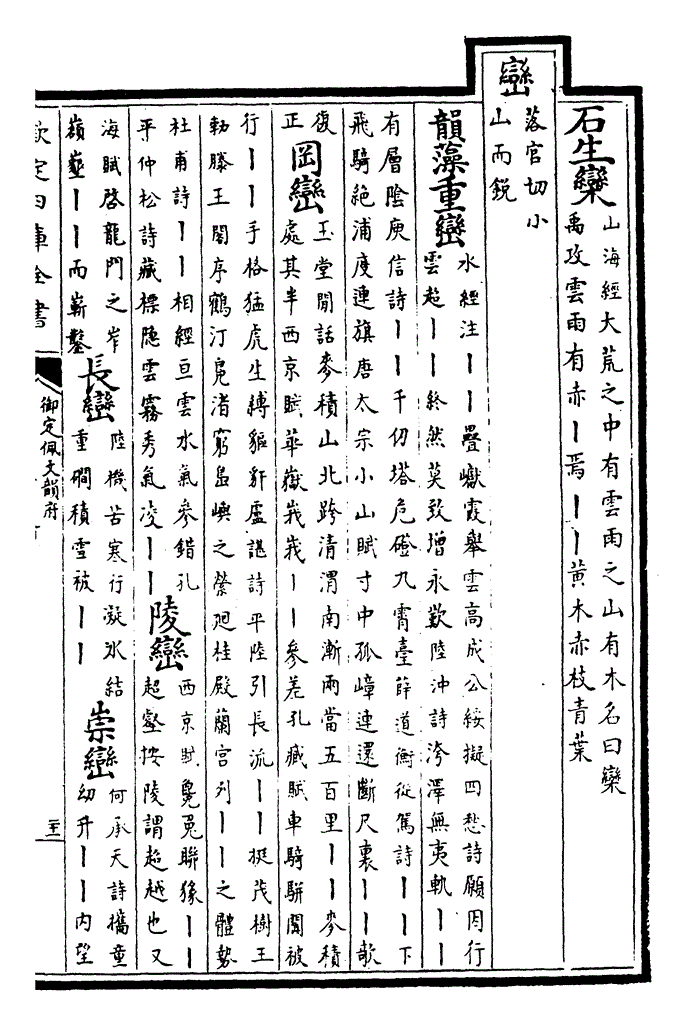 石生欒山海經大荒之中有雲雨之山有木名曰欒
禹攻雲雨有赤丨焉丨丨黃木赤枝青葉
巒落官切小
山而銳
韻藻重巒水經注丨丨疊巘霞舉雲高成公綏擬四愁詩願因行
雲超丨丨終然莫致增永歎陸沖詩洿澤無夷軌丨丨
有層陰庾信詩丨丨千仞塔危磴九霄臺薛道衡從駕詩丨丨下
飛騎絶浦度連旗唐太宗小山賦寸中孤嶂連還斷尺裏丨丨欹
復
正
岡巒玉堂閒話麥積山北跨清渭南漸兩當五百里丨丨麥積
處其半西京賦華嶽峩峩丨丨參差孔臧賦車騎駢闐被
行丨丨手格猛虎生縛貙犴盧諶詩平陸引長流丨丨挺茂樹王
勃滕王閣序鶴汀鳧渚窮島嶼之縈廻桂殿蘭宮列丨丨之體勢
杜甫詩丨丨相經亘雲水氣參錯孔
平仲松詩藏標隐雲霧秀氣凌丨丨
陵巒西京賦鳬兎聯猭丨丨
超壑按陵謂超越也又
海賦啓龍門之岝
嶺墾丨丨而嶄鑿
長巒陸機苦寒行凝氷結
重磵積雪被丨丨
崇巒何承天詩攜童
幼升丨丨内望
欽定四庫全書
御定佩文韻府